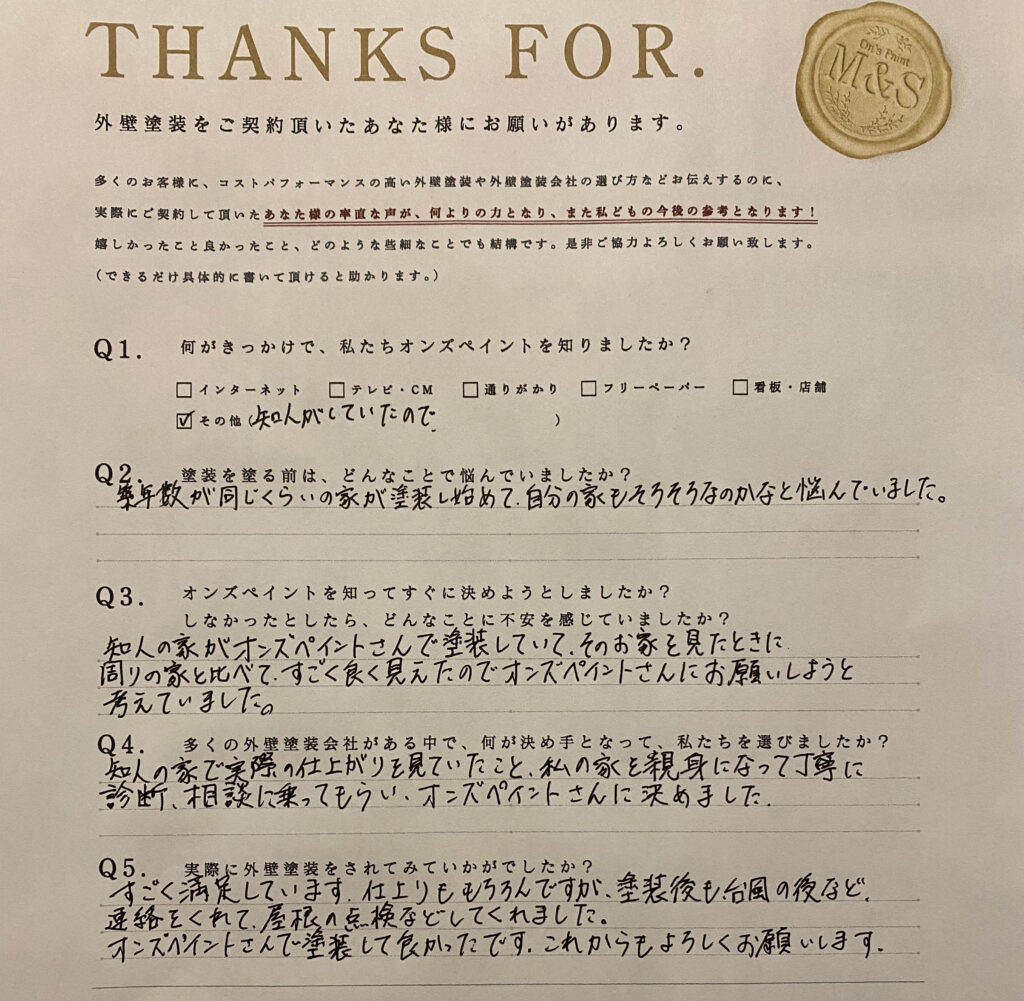 THANKS FOR.
On's Paint
M&S
外壁塗装をご契約頂いたあなた様にお願いがあります。
多くのお客様に、コストパフォーマンスの高い外壁塗装や外壁塗装会社の選び方などお伝えするのに、
実際にご契約して頂いたあなた様の率直な声が、何よりの力となり、また私どもの今後の参考となります！
嬉しかったこと良かったこと、どのような些細なことでも結構です。是非ご協力よろしくお願い致します。
（できるだけ具体的に書いて頂けると助かります。）
Q1. 何がきっかけで、私たちオンズペイントを知りましたか？
□インターネット □テレビ・CM □通りがかり □フリーペーパー □看板・店舗
☑その他（知人がしていたので）
Q2. 塗装を塗る前は、どんなことで悩んでいましたか？
築年数が同じくらいの家が塗装し始めて、自分の家もそろそろなのかなと悩んでいました。
Q3. オンズペイントを知ってすぐに決めようとしましたか？
しなかったとしたら、どんなことに不安を感じていましたか？
知人の家がオンズペイントさんで塗装していて、そのお家を見たときに
周りの家と比べて、すごく良く見えたのでオンズペイントさんにお願いしようと
考えていました。
Q4. 多くの外壁塗装会社がある中で、何が決め手となって、私たちを選びましたか？
知人の家で実際の仕上がりを見ていたこと、私の家を親身になって丁寧に
診断、相談に乗ってもらい、オンズペイントさんに決めました。
Q5. 実際に外壁塗装をされてみていかがでしたか？
すごく満足しています。仕上りももちろんですが、塗装後も、台風の後など、
連絡をくれて、屋根の点検などしてくれました。
オンズペイントさんで塗装して良かったです。これからもよろしくお願いします。